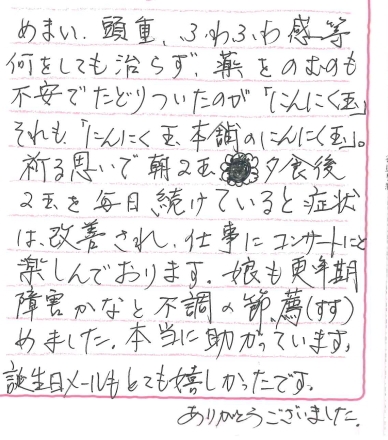 めまい、頭重、ふわふわ感…等
何をしても治らず、薬をのむのも
不安でたどりついたのが「にんにく玉」
それも「にんにく玉本舗のにんにく玉」。
祈る思いで朝2玉 夕食後
2玉を毎日続けていると症状
は、改善され、仕事にコンサートにと
楽しんでおります。娘も更年期
障害かなと不調の節、薦(すす)
めました。本当に助かっています。
誕生日メールもとても嬉しかったです。
ありがとうございました。